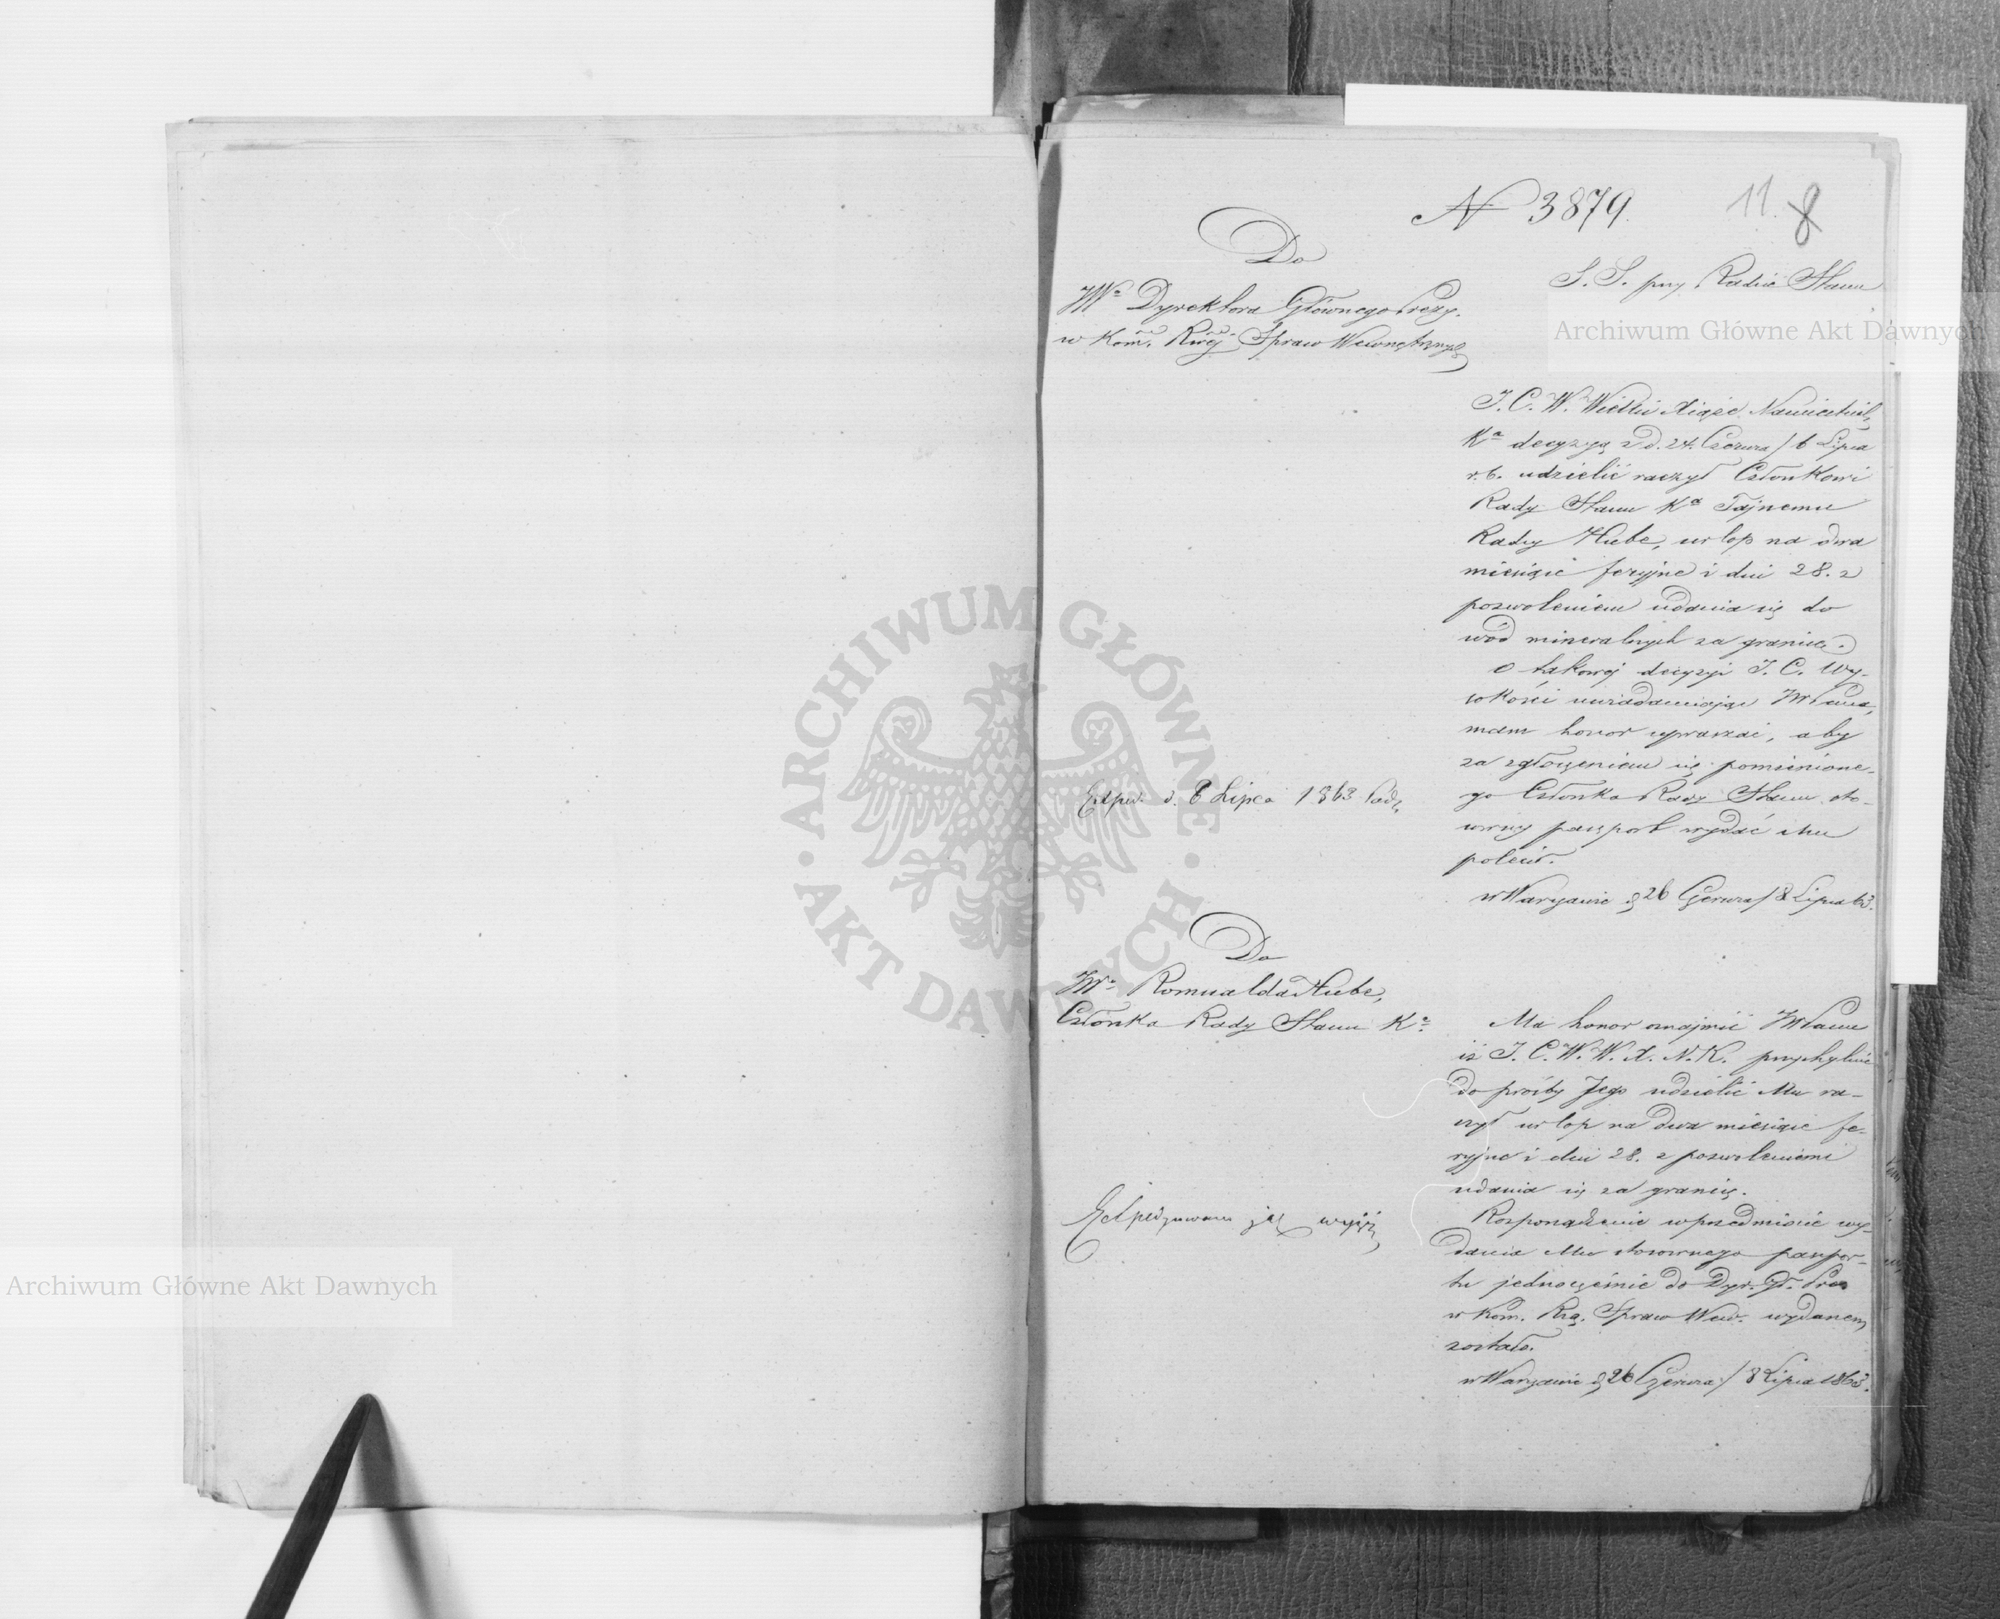 N 3879.
11. 8
Do
JW° Dyrektora Głównego Prezy.
w Kom. Rząj Spraw Wewnętrznych
S. S. przy Radzie Stanu
J. C. W. Wielki Xiąże Namiestnik
Kª decyzyą z d. 24. Czerwca / 6 Lipca
r. b. udzielić raczył Członkowi
Rady Stanu Kª Tajnemu
Radcy Hube, urlop na dwa
miesiące feryjne i dni 28. z
pozwoleniem udania się do
wód mineralnych za granicę.
O takowej decyzyi J. C. Wy-
sokości uwiadamiając JWPana,
mam honor upraszać, aby
za zgłoszeniem się pomienione-
go Członka Rady Stanu sto-
sowny paszport wydać mu
polecił.
w Warszawie d 26 Czerwca / 8 Lipca 63.
Exped. d. 8 Lipca 1863
Do
JW° Romualda Hube,
Członka Rady Stanu Kª
Ma honor oznajmić JWPanu
iż J. C. W. W. X. N. K. przychylnie
do prośby Jego udzielić Mu ra-
czył urlop na dwa miesiące fe-
ryjne i dni 28. z pozwoleniem
udania się za granicę.
Rozporządzenie w przedmiocie wy-
dania Mu stosownego paszpor-
tu jednocześnie do Dyr. Gł. Prez
w Kom. Rzą. Spraw Wew. wydanem
zostało.
w Warszawie d 26 Czerwca / 8 Lipca 1863.
Expedyowano jak wyżej
Archiwum Główne Akt Dawnych
Archiwum Główne Akt Dawnych
ARCHIWUM GŁÓWNE
· AKT DAWNYCH ·